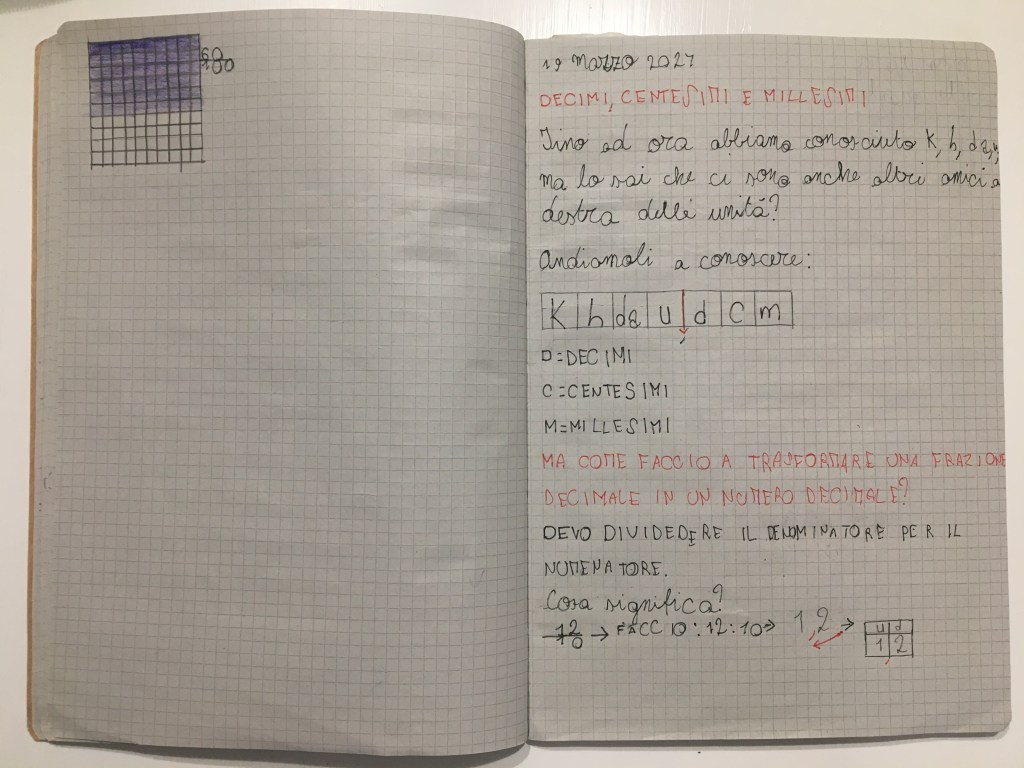 60
100
19 Marzo 2021
DECIMI, CENTESIMI E MILLESIMI
Fino ad ora abbiamo conosciuto K, h, da,
ma lo sai che ci sono anche altri amici a
destra delle unità?
Andiamoli a conoscere:
K h da u d C m
,
D=DECIMI
C=CENTESIMI
M=MILLESIMI
MA COME FACCIO A TRASFORMARE UNA FRAZIONE
DECIMALE IN UN NUMERO DECIMALE?
DEVO DIVIDEDERE IL DENOMINATORE PER IL
NUMENATORE.
Cosa significa?
12
10 → FACCIO: 12:10→ 1,2 →
u d
1 2
,